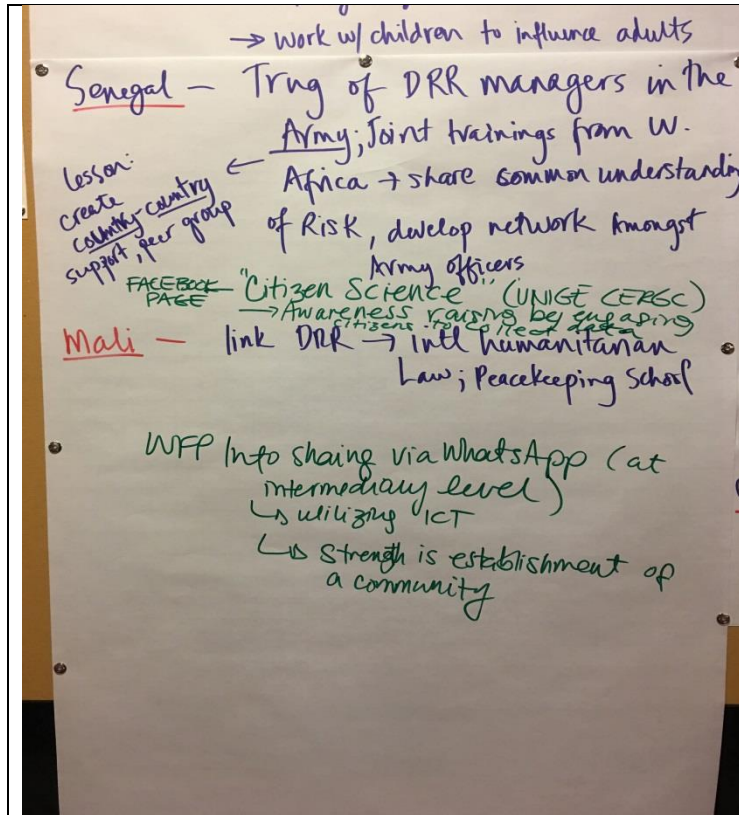 → work w/ children to influence adults
Senegal — Trng of DRR managers in the
Army; Joint trainings from W.
Africa → share common understanding
of Risk, develop network amongst
Army officers
←
Lesson:
create
country-country
support, peer group
FACEBOOK PAGE — "Citizen Science" (UNIGE CERGC)
→ Awareness raising by engaging
citizens to collect data
Mali — link DRR → intl humanitarian
Law; Peacekeeping School
WFP Info shaing via WhatsApp (at
intermediary level)
↳ utilizing ICT
↳ Strength is establishment of
a community